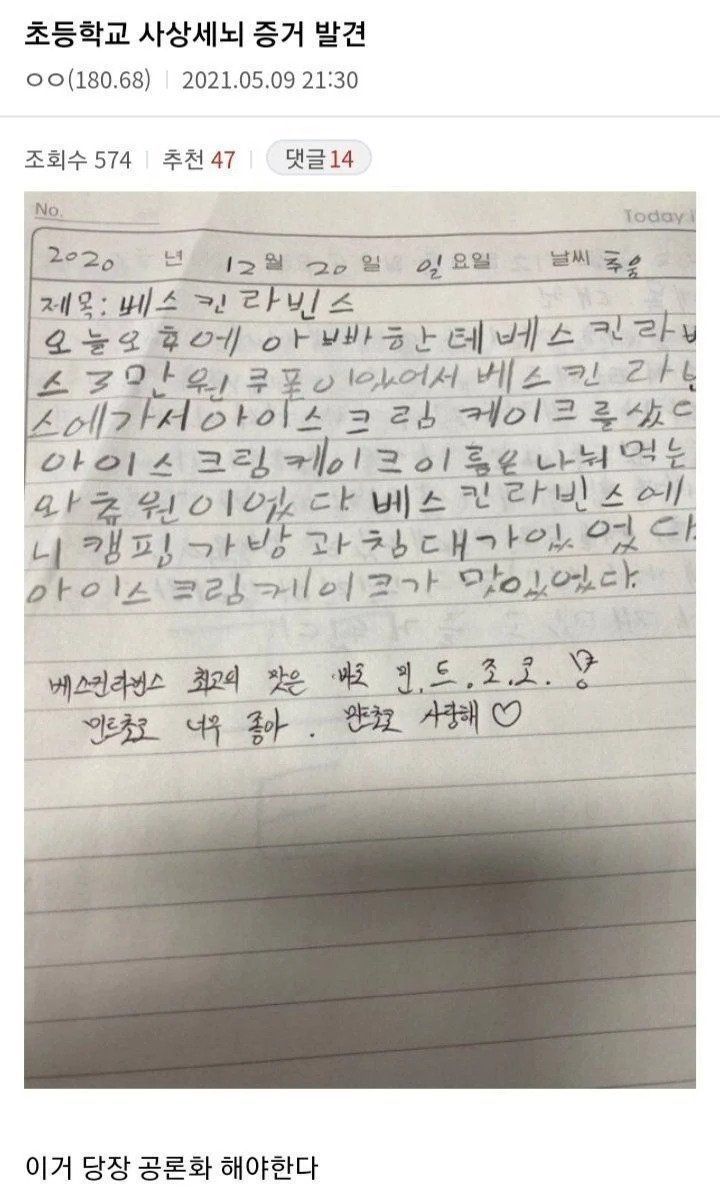 초등학교 사상세뇌 증거 발견
ㅇㅇ(180.68) 2021.05.09 21:30
조회수 574 추천 47 댓글 14
No. Today i
2020 년 12월 20일 일요일 날씨 추움
제목: 베스킨라빈스
오늘오후에 아빠한테베스킨라
스 3만원쿠폰이있어서 베스킨라
스에가서아이스크림 케이크를샀
아이스크림케이크이름은나눠먹는
와츄원이었다 베스킨라빈스에
니 캠핑가방과침대가있었다.
아이스크림케이크가 맛있었다.
베스킨라빈스 최고의 맛은 바로 민.트.초.코.
민트초코 너무 좋아. 민트초코 사랑해♡
이거 당장 공론화 해야한다